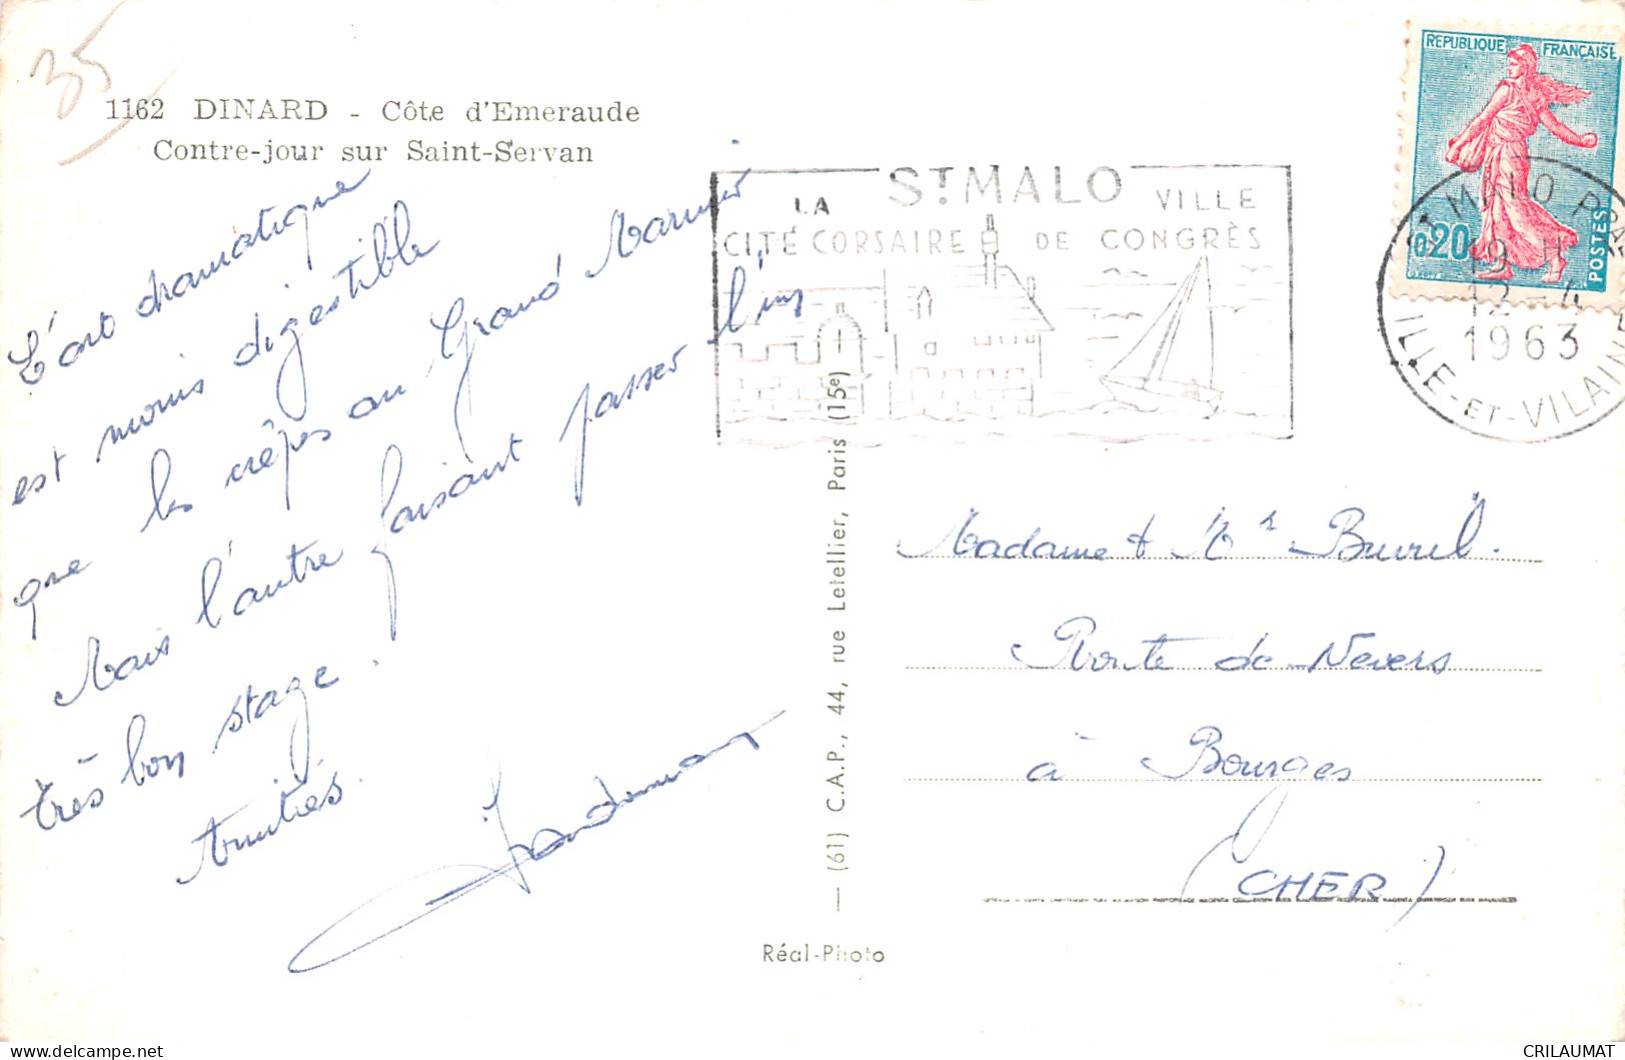 35
1162 DINARD - Côte d'Emeraude
Contre-jour sur Saint-Servan
L'art dramatique
est moins digestible
que les crêpes au Grand Marnier
Mais l'autre faisant passer l'un
très bon stage.
Amitiés.
ST MALO
LA VILLE
CITÉ CORSAIRE DE CONGRÈS
REPUBLIQUE FRANÇAISE
0,20
POSTES
ST MALO
19 H
12-4
1963
ILLE-ET-VILAINE
Madame & Mr
Route de Nevers
à Bourges
(CHER)
— (61) C.A.P., 44, rue Letellier, Paris (15e)
Réal-Photo
CRILAUMAT